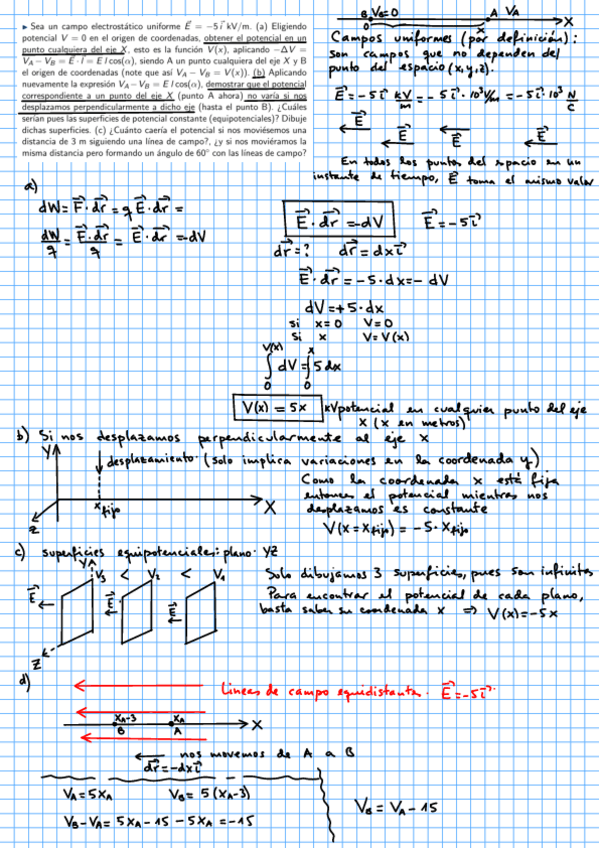 ► Sea un campo electrostático uniforme E⃗ = −5 i⃗ kV/m. (a) Eligiendo
potencial V = 0 en el origen de coordenadas, obtener el potencial en un
punto cualquiera del eje X, esto es la función V(x), aplicando −ΔV =
V_A − V_B = E⃗ · l⃗ = E l cos(α), siendo A un punto cualquiera del eje X y B
el origen de coordenadas (note que así V_A − V_B = V(x)). (b) Aplicando
nuevamente la expresión V_A − V_B = E l cos(α), demostrar que el potencial
correspondiente a un punto del eje X (punto A ahora) no varía si nos
desplazamos perpendicularmente a dicho eje (hasta el punto B). ¿Cuáles
serían pues las superficies de potencial constante (equipotenciales)? Dibuje
dichas superficies. (c) ¿Cuánto caería el potencial si nos moviésemos una
distancia de 3 m siguiendo una línea de campo?, ¿y si nos moviéramos la
misma distancia pero formando un ángulo de 60° con las líneas de campo?
B V_B=0 A V_A
0 x X
Campos uniformes (por definición):
son campos que no dependen del
punto del espacio (x,y,z).
E⃗ = −5 i⃗ kV/m = −5 i⃗·10³ V/m = −5 i⃗·10³ N/C
E⃗ E⃗ E⃗ E⃗
En todos los puntos del espacio en un
instante de tiempo, E⃗ toma el mismo valor
a)
dW = F⃗·dr⃗ = q E⃗·dr⃗ =
dW/q = E⃗·dr⃗/q = E⃗·dr⃗ = −dV
E⃗·dr⃗ = −dV E⃗ = −5 i⃗
dr⃗ = ? dr⃗ = dx i⃗
E⃗·dr⃗ = −5·dx = −dV
dV = +5·dx
si x=0 V=0
si x V=V(x)
V(x) x
∫ dV = ∫ 5 dx
0 0
V(x) = 5x kV potencial en cualquier punto del eje
X (x en metros)
b) Si nos desplazamos perpendicularmente al eje x
Y desplazamiento (solo implica variaciones en la coordenada y)
Como la coordenada x está fija
entonces el potencial mientras nos
Z x fijo X desplazamos es constante
V(x = x fijo) = −5·x fijo
c) superficies equipotenciales: plano YZ
Y V₃ < V₂ < V₁ Solo dibujamos 3 superficies, pues son infinitas
E⃗ E⃗ E⃗ Para encontrar el potencial de cada plano,
basta saber su coordenada x ⇒ V(x) = −5x
Z
d)
Líneas de campo equidistantes. E⃗ = −5 i⃗
x_A−3 x_A X
B A
nos movemos de A a B
dr⃗ = −dx i⃗
V_A = 5x_A V_B = 5(x_A−3)
V_B = V_A − 15
V_B − V_A = 5x_A − 15 − 5x_A = −15